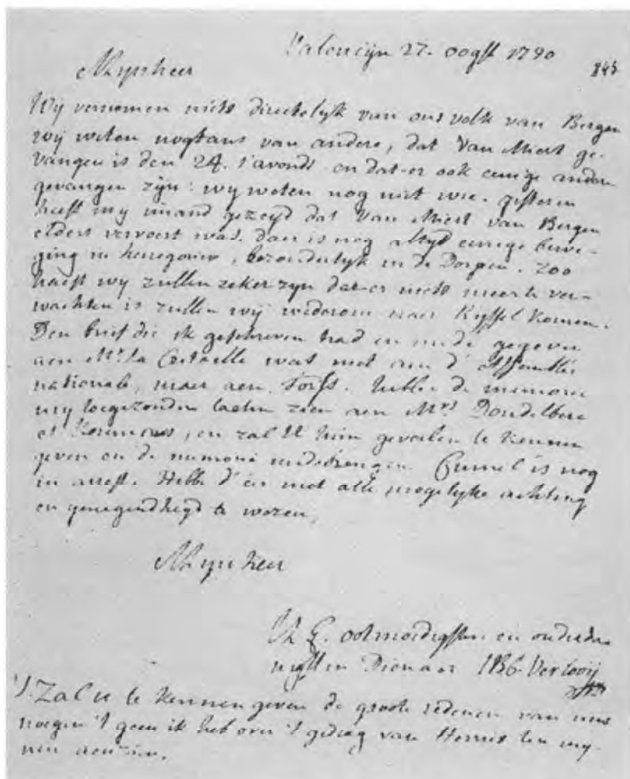 Valencijn 27. oogst 1790
845
Mynheer
Wij vernemen niets directelyk van ons volk van Bergen
wij weten nogtans van andere, dat Van Miert ge-
vangen is den 24. s'avonds en dat-er ook eenige andere
gevangen zijn: wy weten nog niet wie. gisteren
heeft my imand gezeyd dat Van Miert van Bergen
elders vervoert was. daer is nog altyd eenige bewe-
ging in henegouw, bezonderlyk in de Dorpen. Zoo
haest wy zullen zeker zyn dat-er niets meer te ver-
wachten is zullen wij wederom naer Ryssel komen.
Den brief die ik geschreven had en mede gegeven
aen Mr. la was niet aen d'Assemblée
nationale, maer aen Torfs. hebbe de memorie
my toegezonden laeten zien aen Mrs
et , en zal U hun gevoelen te kennen
geven en de memorie medebrengen. is nog
in arrest. Hebbe d'eer met alle mogelyke achting
en genegendheyd te wezen,
Mynheer
Uw E. ootmoedigsten en onderda-
nigsten Dienaer Verlooij
'T Zal u te kennen geven de groote redenen van
noegen 't geen ik heb over 't gedrag van ten my-
nen aenzien.